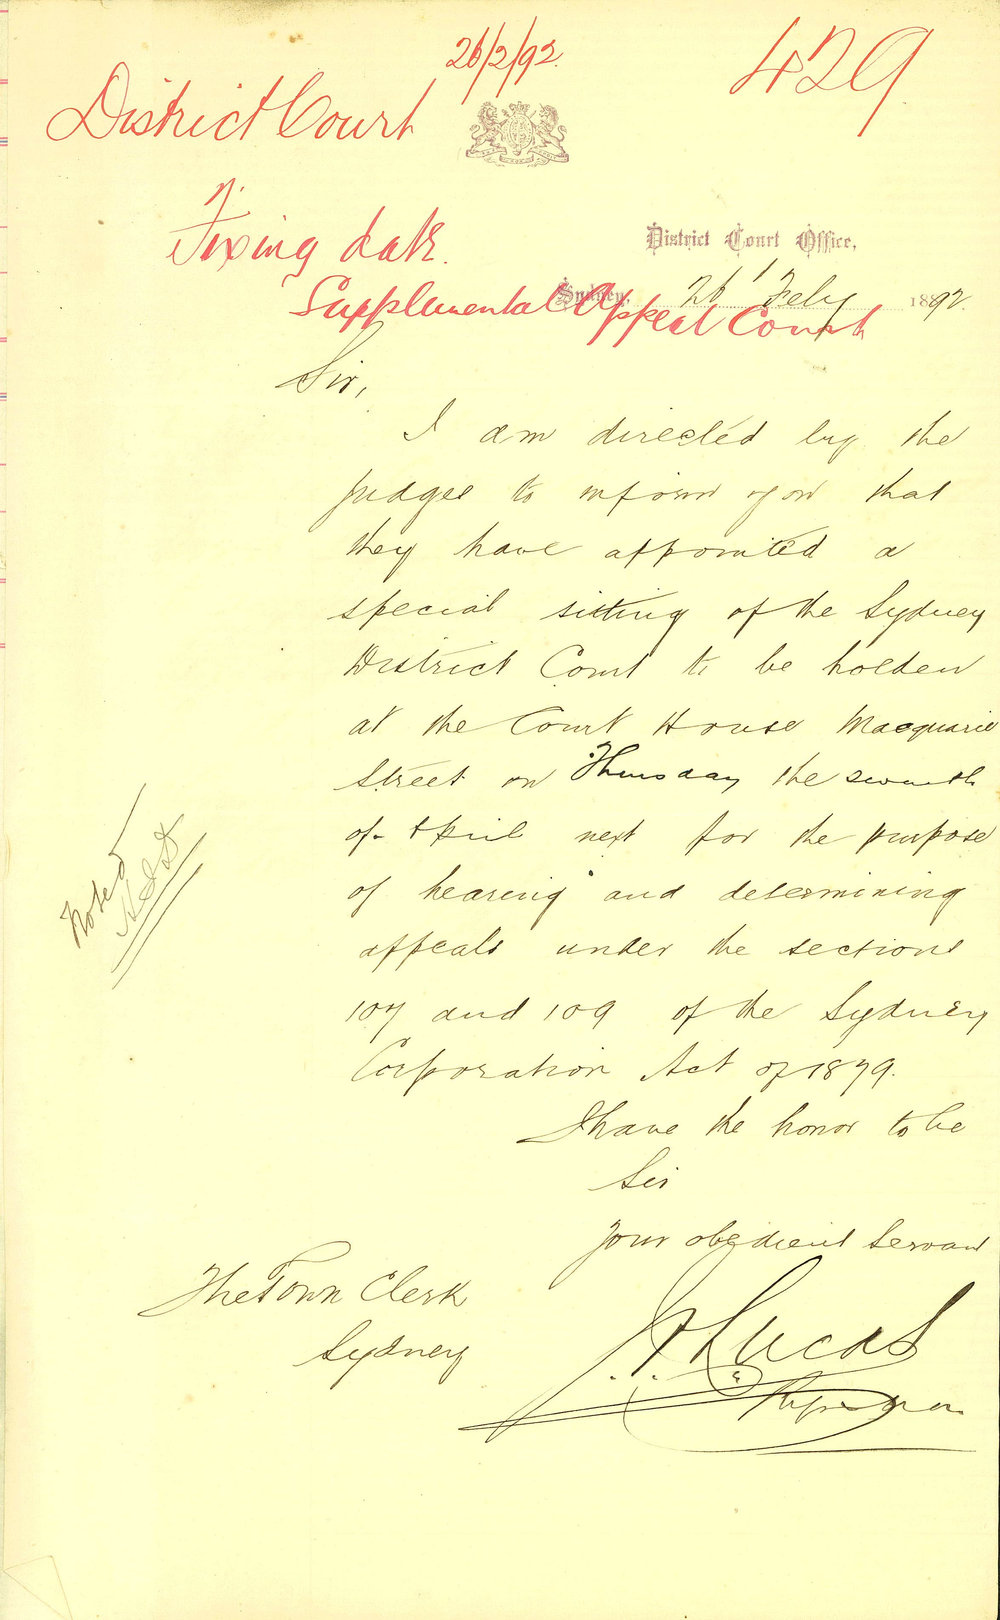 26/2/92.
429
District Court
Fixing date.
District Court Office,
Sydney, 26 Feby 1892.
Supplemental Appeal Court
Sir,
I am directed by the
judges to inform you that
they have appointed a
special sitting of the Sydney
District Court to be holden
at the Court House Macquarie
Street on Thursday the seventh
of April next for the purpose
of hearing and determining
appeals under the sections
107 and 109 of the Sydney
Corporation Act of 1879.
I have the honor to be
Sir
Your obedient Servant
The Town Clerk
Sydney
Lucas
Registrar
Noted